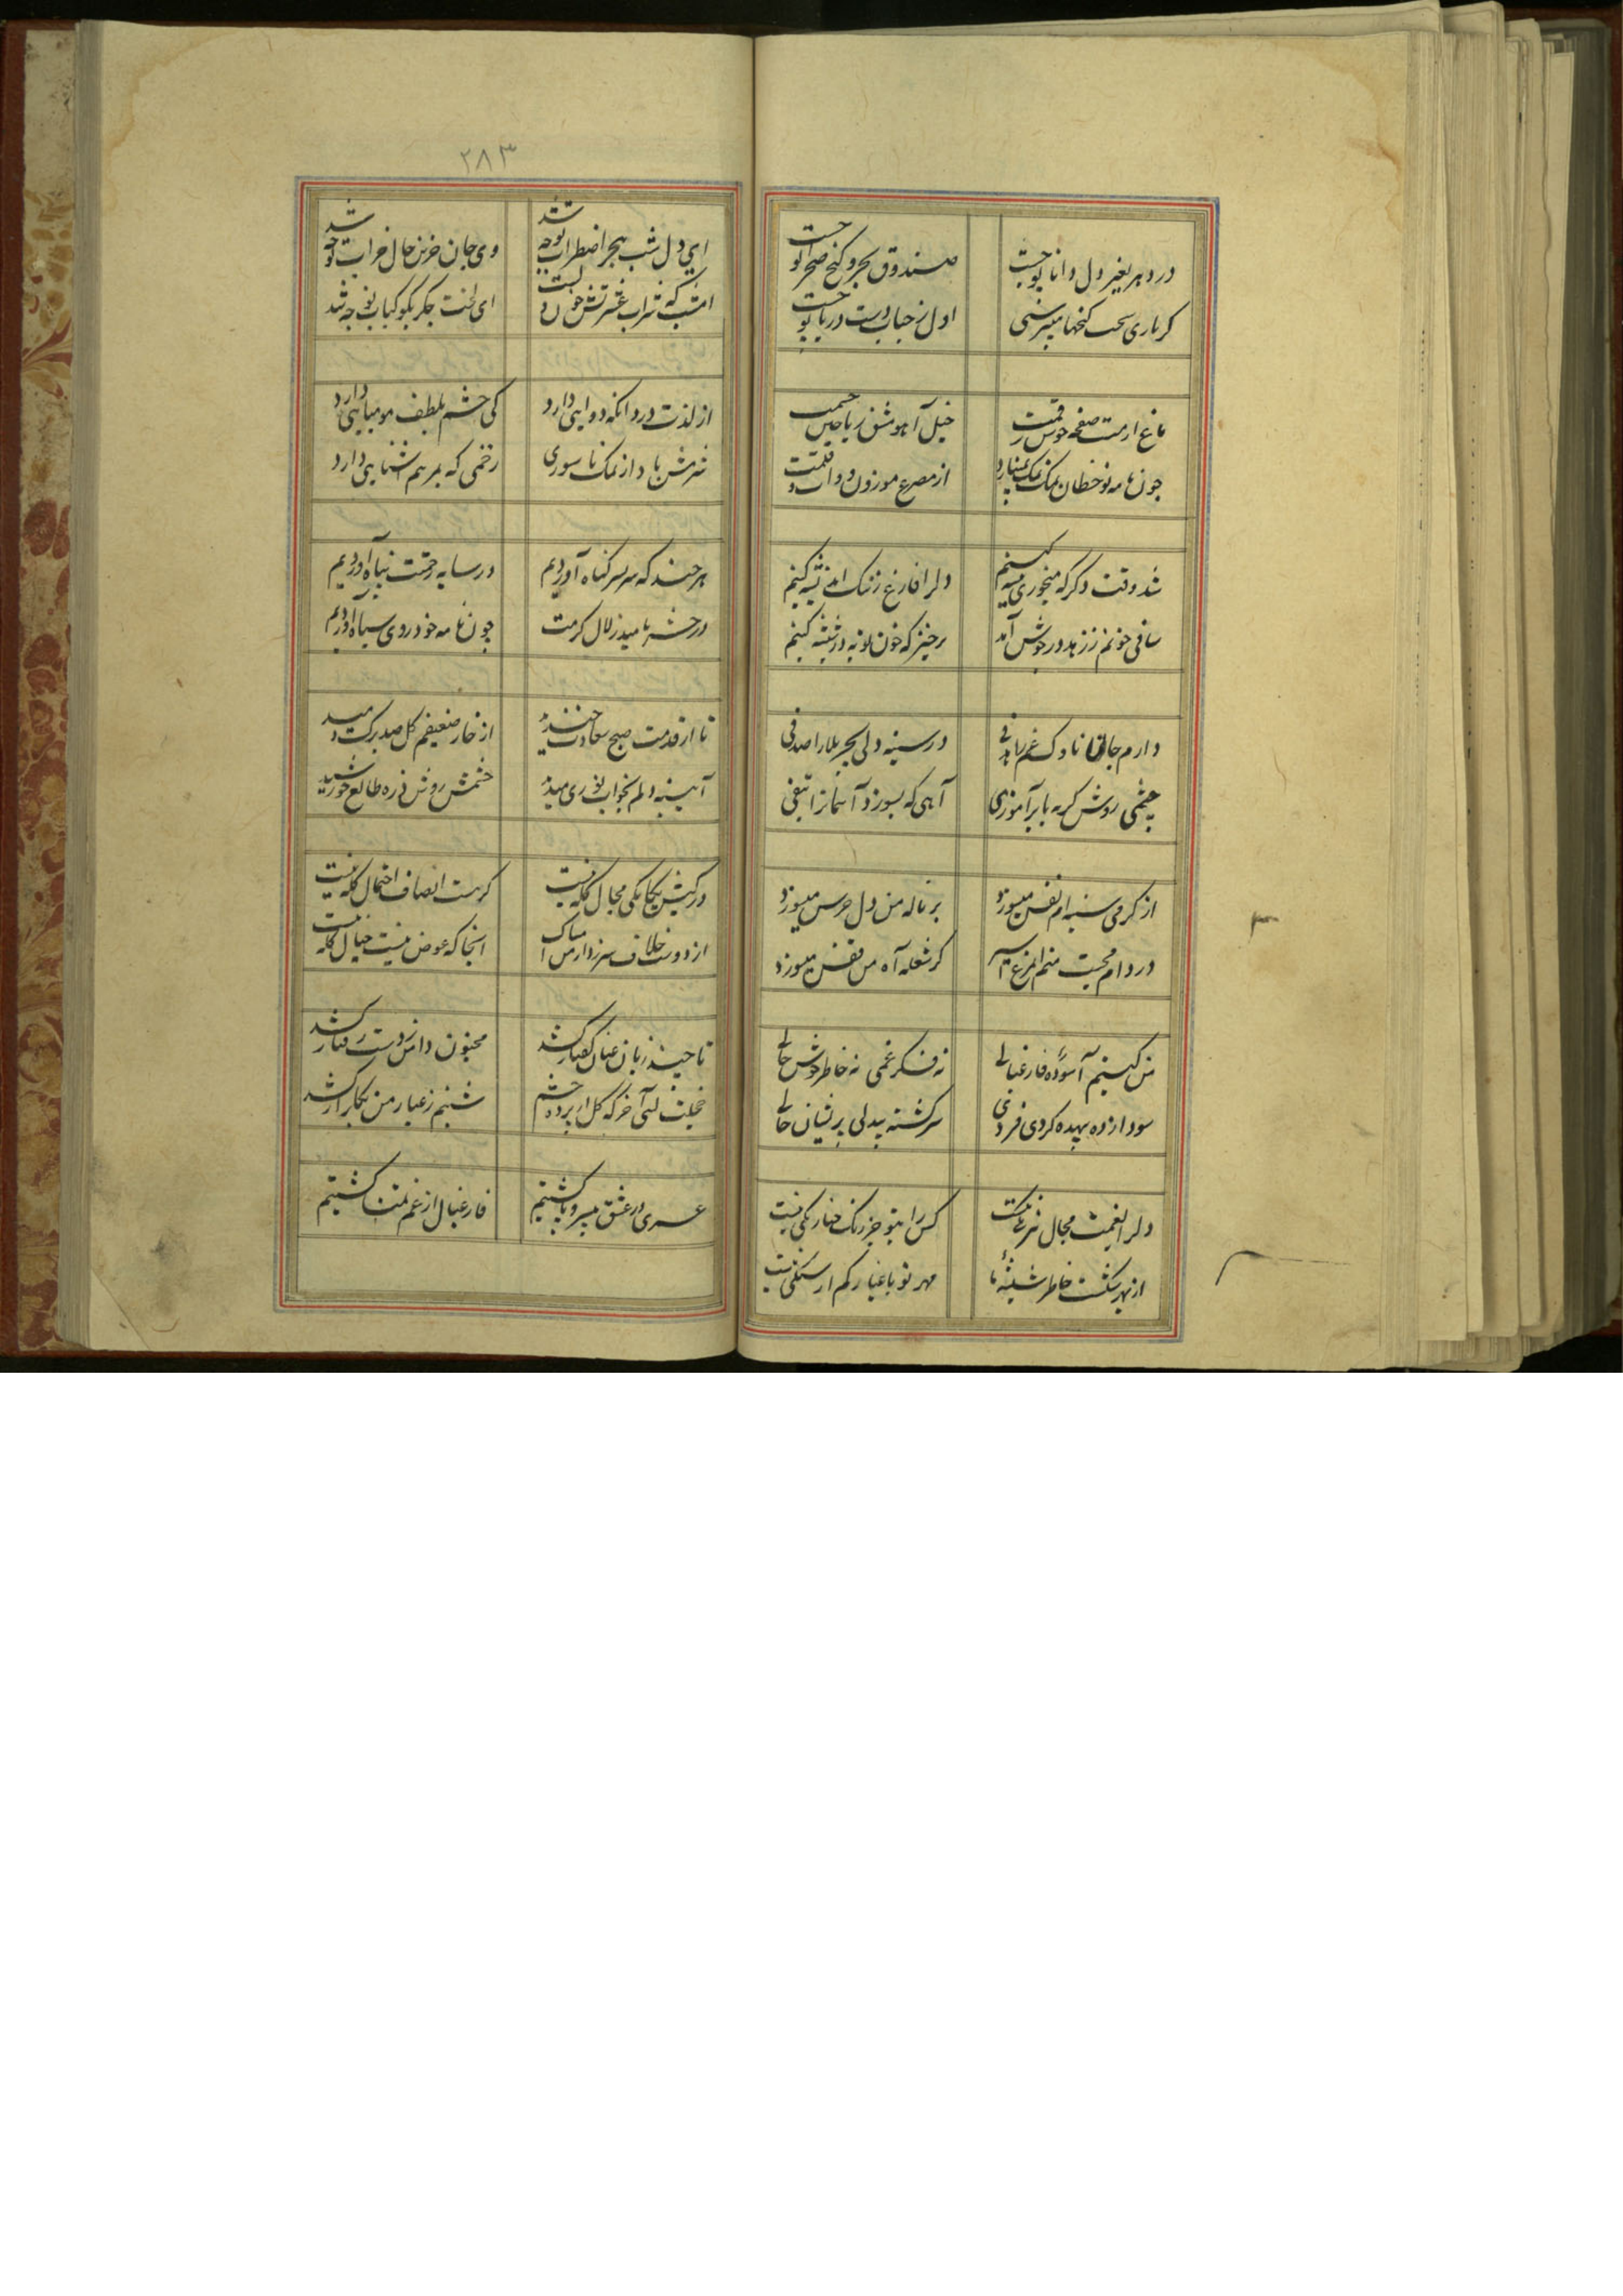 در دهر بغیر دل دانا تو چیست
صندوق بحر و کنج صحرا تو چیست
کر باری سخت کنجها میر سنجی
اول ز حباب دست دریا تو چیست
باغ ارمت صفحه خوش رقمت
خیل آهو مشق ریاحین
چون نامه نو خطان نمک
از مصرع موزون دوات و قلمت
شد وقت دگر که میخوری پیشه کنیم
دلرا فارغ ز زنک اندیشه کنیم
ساقی خونم ز زهد در جوش آمد
برخیز که خون توبه در شیشه کنیم
دارم جانی ناوک غم را هدفی
در سینه دلی بحر بلا را صدفی
چشمی روش کریه بابر آموزی
آهی که بسوزد آسمانرا تفی
از کرمی سینه ام نفس میسوزد
بر ناله من دل جرس میسوزد
در دام محبت منم المرغ اسیر
کز شعله آه من قفس میسوزد
من کیستم آسوده فارغبالی
نه فکر غمی نه خاطر خوش حالی
سودازده بیهده کردی فردی
سرکشته بیدلی پریشان حالی
دلرا بغمت مجال نیرنکی نیست
کس را بتو جز رنک حنا رنکی نیست
از بهر شکست خاطر شیشه ما
مهر تو باغیار کم از سنکی نیست
۲۸۳
ای دل شب هجر اضطراب تو چه شد
وی جان حزین حال خراب تو چه شد
امشب که شراب عشرتش خون دلست
ای لخت جکر بکو کباب تو چه شد
از لذت درد آنکه دوایی دارد
کی چشم بلطف مومیایی دارد
شرمش باد از نمک ناسوری
زخمی که بمرهم آشنایی دارد
هر چند که سر بسر کناه آوردیم
در سایه رحمتت پناه آوردیم
در حشر بامید زلال کرمت
چون نامه خود روی سیاه آوردیم
تا از قدمت صبح سعادت خندید
از خار ضعیفم کل صد برک دمید
آیینه دلم بخواب نوری میدید
خشمش روشن ذره طالع خورشید
در کیش یکانکی مجال کله نیست
کر هست انصاف احتمال کله نیست
از دوست خلاف سر زد امساک
آنجا که عوض نیست خیال کله نیست
تا چند زبان عنان کفتار کشد
مجنون دامن ز دست رفتار کشد
خجلت کشی آخر که کل از پرده چشم
شبنم ز غبار من بکلزار کشد
عمری در عشق بیسر و پا کشتیم
فارغبال از غم تمنا کشتیم